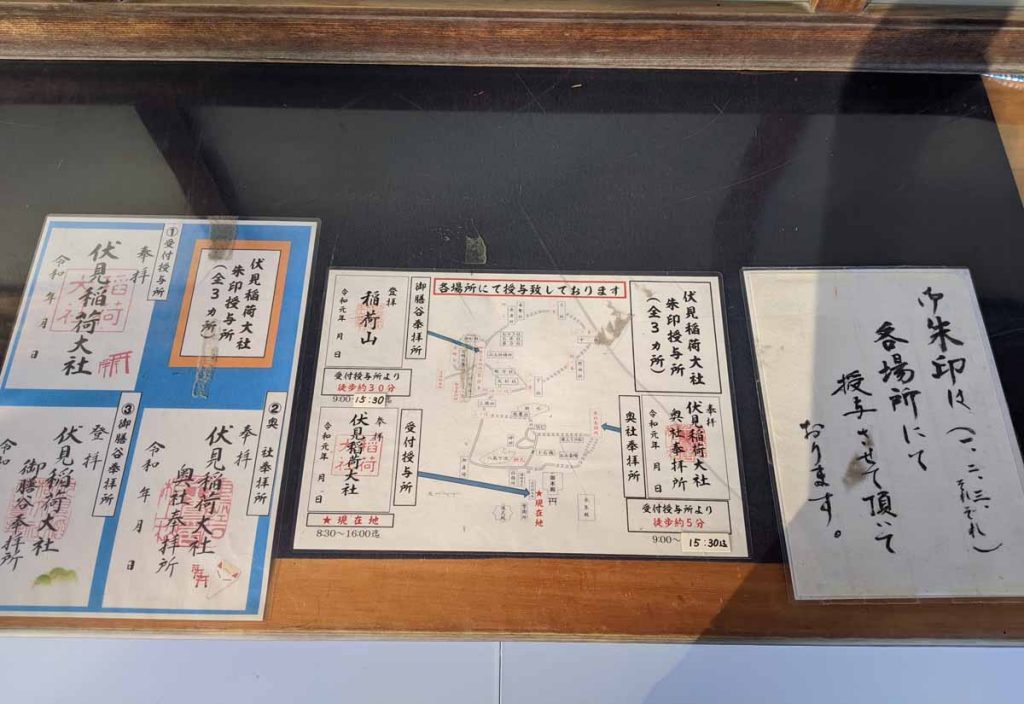 伏見稲荷大社
朱印授与所
(全3ヵ所)
①受付授与所
奉拝
伏見稲荷大社
令和 年 月 日
②奥 社奉拝所
奉拝
伏見稲荷大社
奥社奉拝所
令和 年 月 日
③御膳谷奉拝所
登拝
伏見稲荷大社
御膳谷奉拝所
令和
各場所にて授与致しております
伏見稲荷大社
朱印授与所
(全3ヵ所)
御膳谷奉拝所
登拝
稲荷山
令和元年 月 日
受付授与所より
徒歩約30分
9:00
15:30
受付授与所
奉拝
伏見稲荷大社
令和元年 月 日
★現在地
8:30~16:00迄
★現在地
奥社奉拝所
奉拝
伏見稲荷大社
奥社奉拝所
令和元年 月 日
受付授与所より
徒歩約5分
9:00~
15:30迄
御朱印は(一、二、三、それぞれ)
各場所にて
授与させて頂いて
おります。